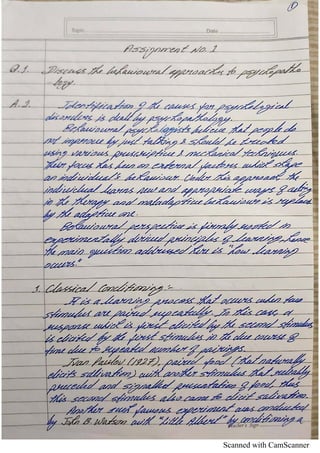 1
Topic
Date
Assignment No. 1
Q.1. Discuss the behavioural approaches to psychopatho
logy.
A.1. Identification of the causes for psychological
disorders is dealt by psychopathology.
Behavioural psychologists believe that people do
not improve by just talking & should be treated
using various prescriptive & mechanical techniques.
Their focus has been on external factors which shape
an individual's behaviour. Under this approach the
individual learns new and appropriate ways of acting
in the therapy and maladaptive behaviour is replaced
by the adaptive one.
Behavioural perspective is firmly rooted in
experimentally derived principles of learning, hence
the main question addressed here is "how learning
occurs"
1. Classical Conditioning :-
It is a learning process that occurs when two
stimulus are paired repeatedly. In this case a
response which is first elicited by the second stimulus
is elicited by the first stimulus in the due course of
time due to repeated number of pairings.
Ivan Pavlov (1927), paired food (that naturally
elicits salivation) with another stimulus that reliably
preceded and signalled presentation of food thus
this second stimulus also came to elicit salivation.
Another such famous experiment was conducted
by John B. Watson with "Little Albert" by conditioning a
Teacher's Sign
Scanned with CamScanner